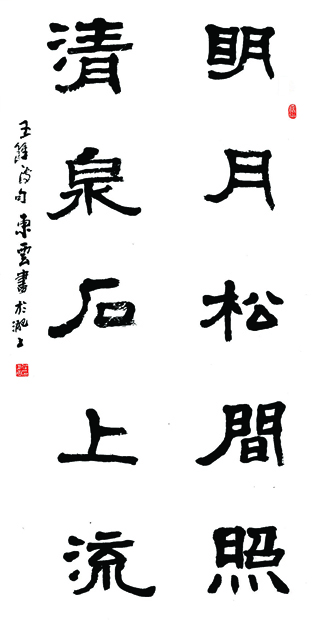 明月松間照
清泉石上流
王維詩句 東雲書於淝上